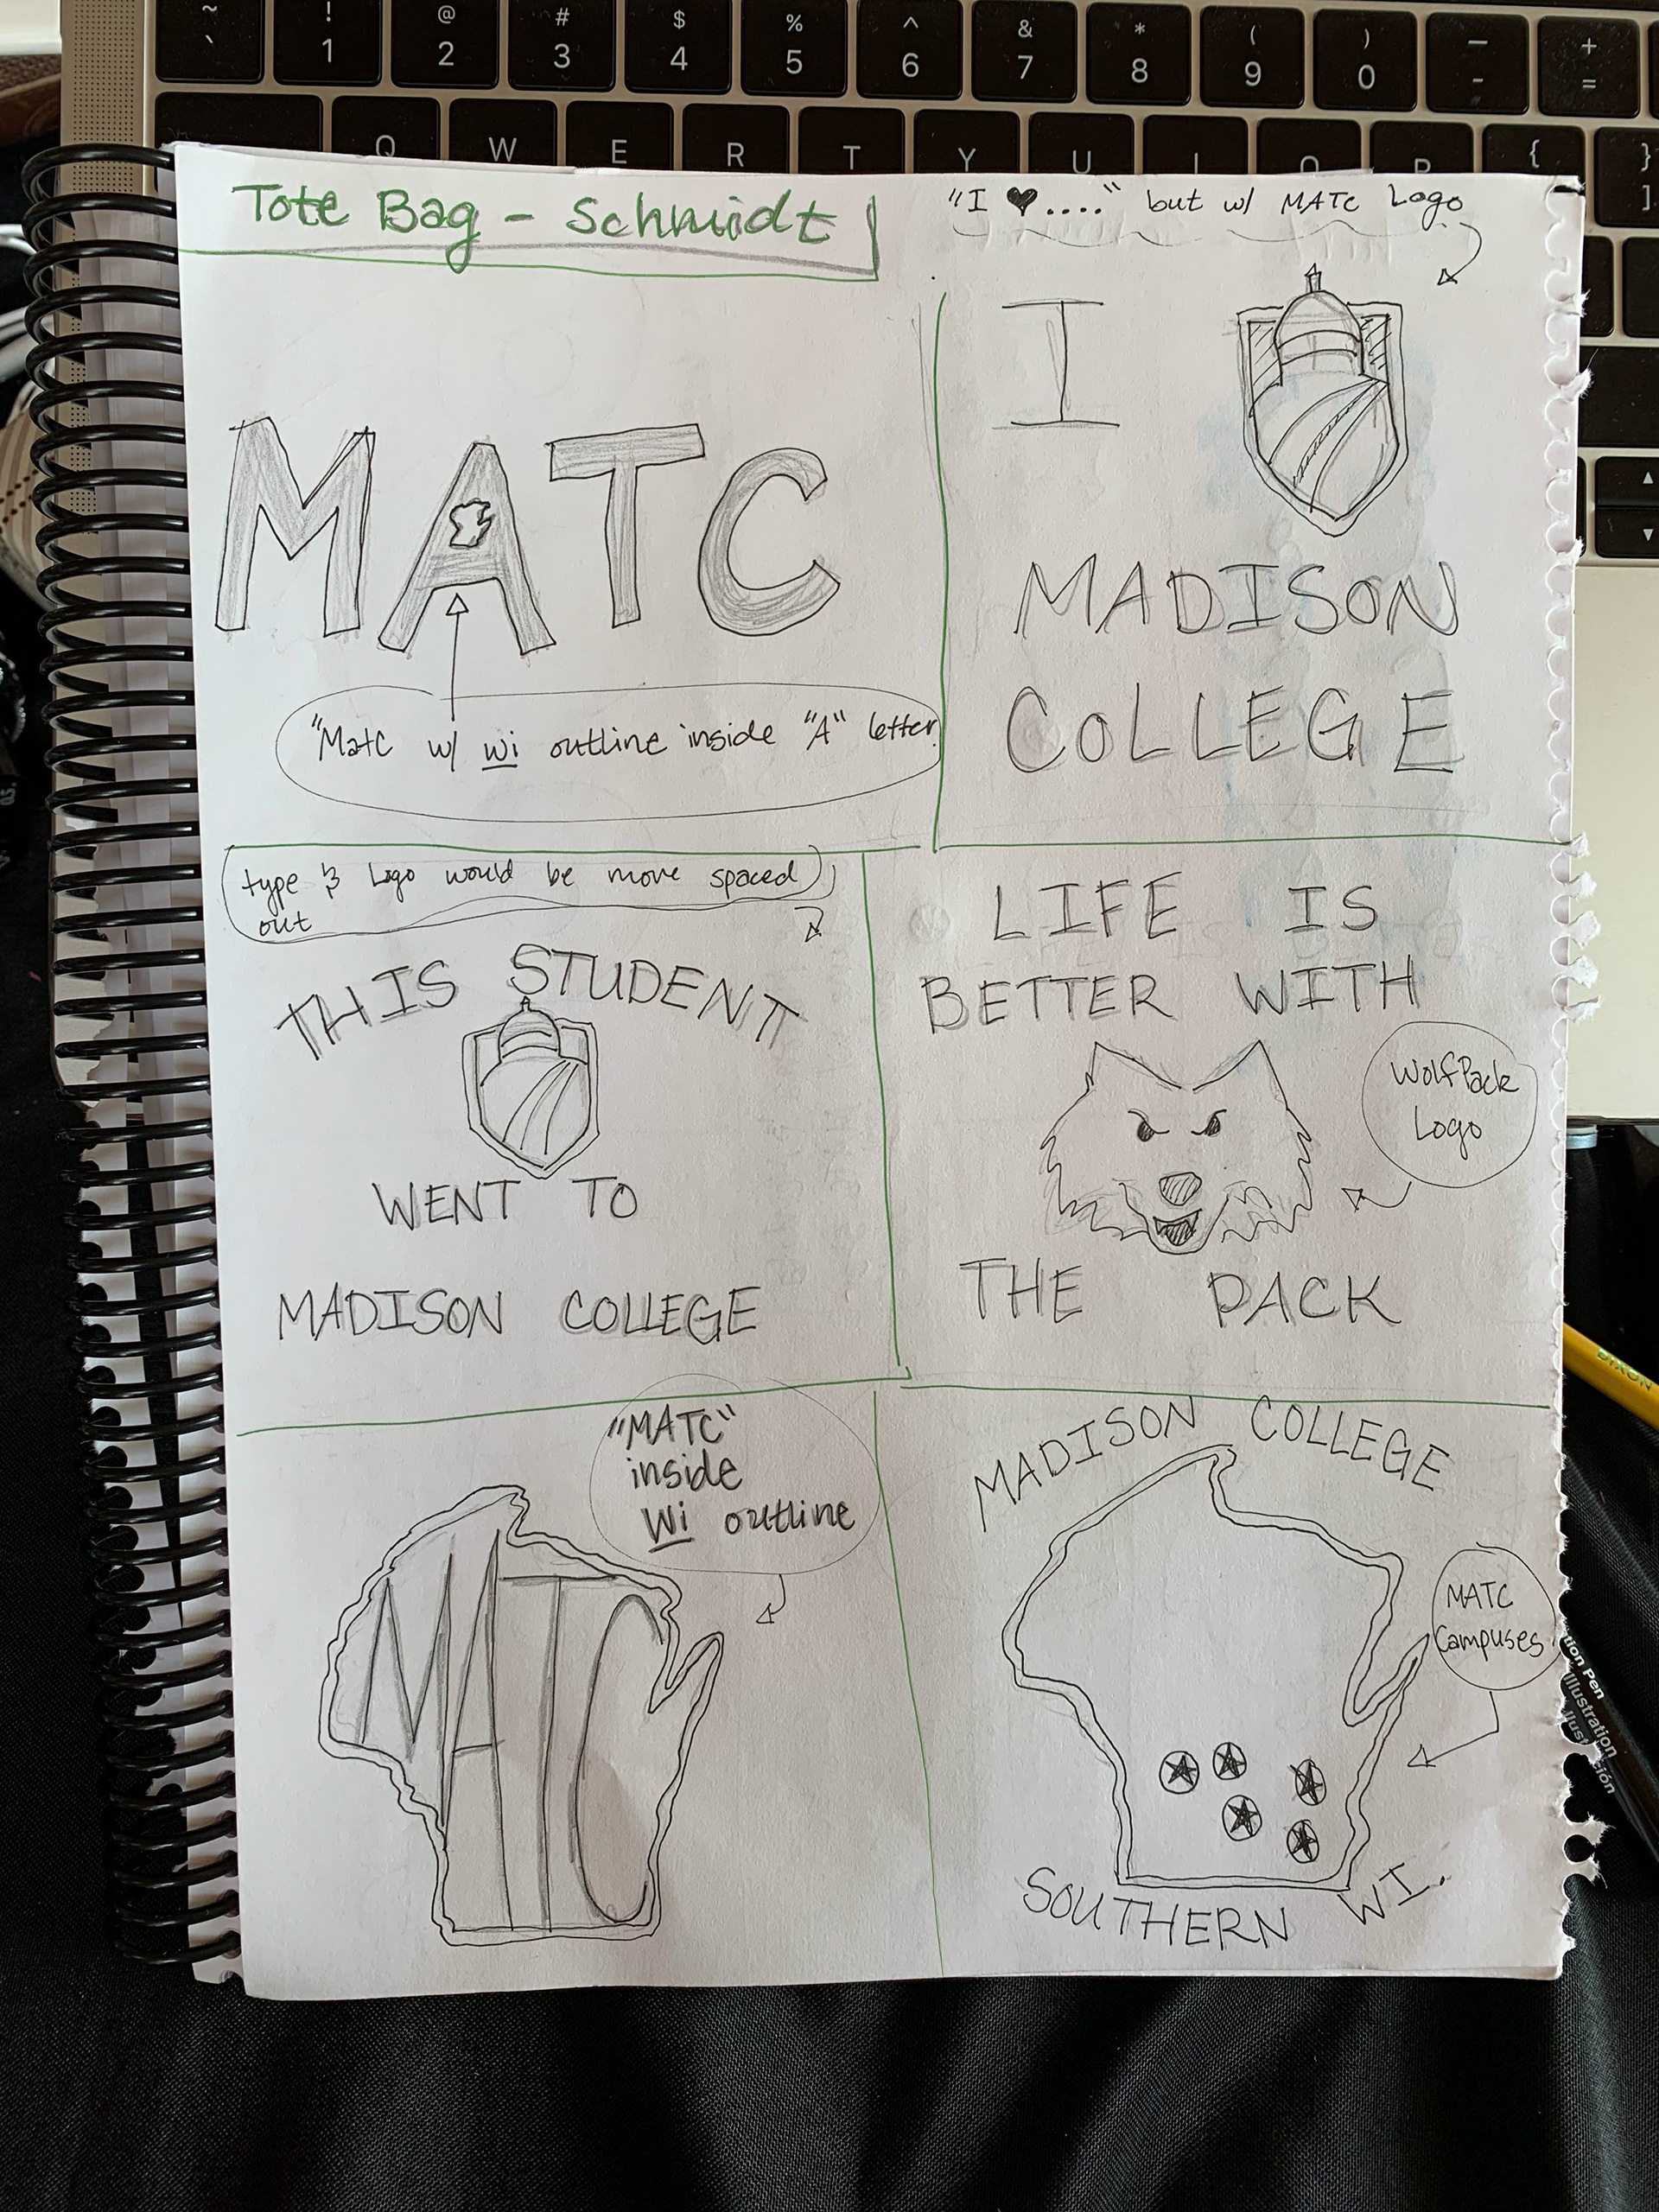 ~ ! @ # $ % ^ & * ( ) — +
` 1 2 3 4 5 6 7 8 9 0 - =
Q W E R T Y U I O P { }
]
Tote Bag - Schmidt
"I ♥...." but w/ MATC Logo
MATC
"Matc w/ wi outline inside "A" letter
I
MADISON
COLLEGE
type & Logo would be more spaced
out
THIS STUDENT
WENT TO
MADISON COLLEGE
LIFE IS
BETTER WITH
WolfPack
Logo
THE PACK
"MATC"
inside
Wi outline
MATC
MADISON COLLEGE
MATC
Campuses
SOUTHERN WI.
DIXON
tion Pen
Illustration